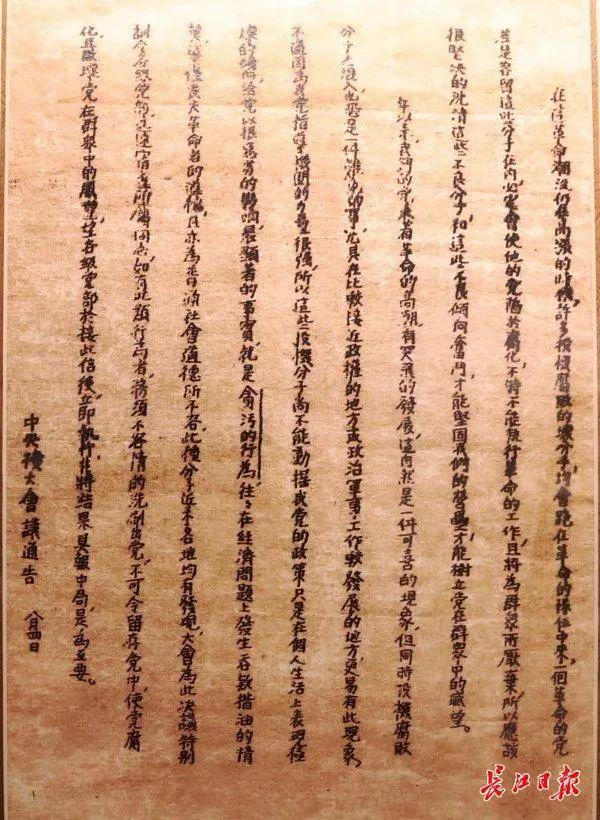 在这革命潮流仍在高涨的时候,許多投機腐敗的壞分子,均會跑在革命的隊伍中来,一個革命的党
若是容留這些分子在內,必定會使他的党陷於腐化,不特不能执行革命的工作,且將為群眾所厭棄。所以應該
很堅决的洗清這些不良分子,和這些不良傾向奮鬥,才能堅固我們的營壘,才能樹立党在群眾中的威望。
年以來我們的党乘着革命的高潮,有突飛的發展,這自然是一件可喜的現象,但同時投機腐敗
分子之混入,也恐是一件难免的事,尤其在比較接近政權的地方或政治軍事工作較發展的地方,更易有此現象,
不過因為我党指導機関的力量很強,所以這些投機分子尚不能動搖我党的政策,只是在個人生活上表現極
壞的傾向,給党以很惡劣的影响,最顯著的事實,就是貪污的行為,往往在經濟問題上發生吞款揩油的情
弊,這僅丧失革命者的道德,且亦為普通社會道德所不容,此種分子近来各地均有發現,大會為此决議特別
訓令各級党部,迅速審查所屬同志,如有此類行為者,務須不容情的洗刷出党,不可令留存党中,使党腐
化,且敗壞党在群眾中的威望,望各級党部於接此信後,立即執行,並將結果具報中局,是為至要。
中央擴大會議通告 八月四日
長江日报